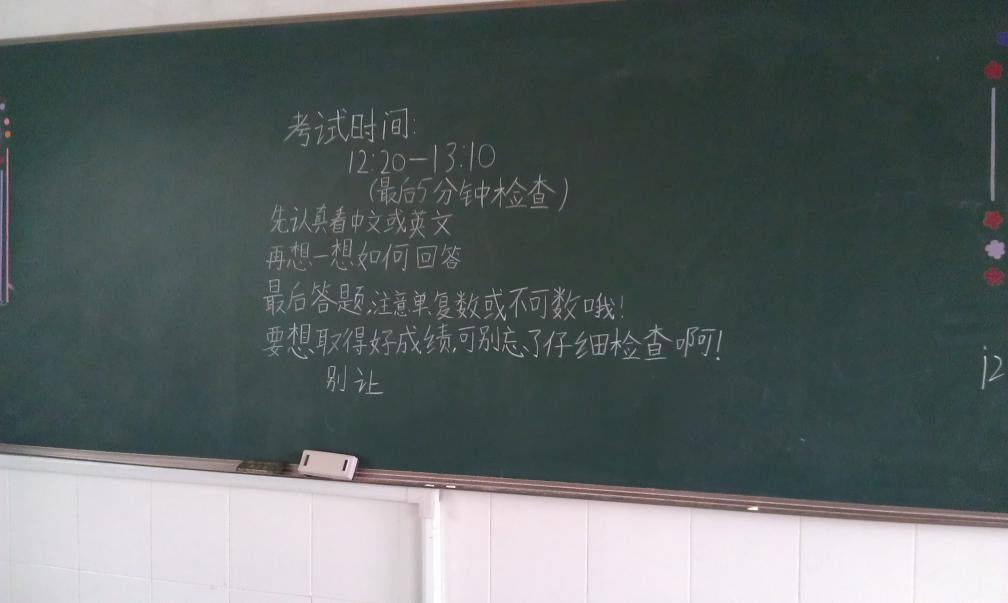 考试时间:
12:20-13:10
(最后5分钟检查)
先认真看中文或英文
再想一想如何回答
最后答题,注意单复数或不可数哦!
要想取得好成绩,可别忘了仔细检查啊!
别让
12